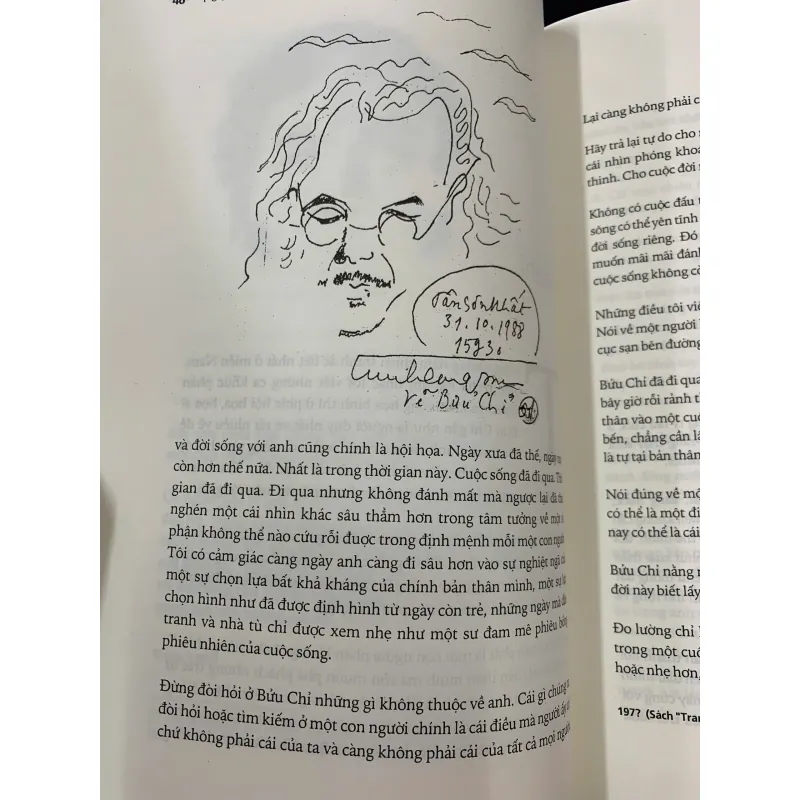 40
Tân Sơn Nhất
31.10.1988
15g30
vẽ Bửu Chỉ
và đời sống với anh cũng chính là hội họa. Ngày xưa đã thế, ngày
còn hơn thế nữa. Nhất là trong thời gian này. Cuộc sống đã đi qua.
gian đã đi qua. Đi qua nhưng không đánh mất mà ngược lại đã
nghén một cái nhìn khác sâu thẳm hơn trong tâm tưởng về một
phận không thể nào cứu rỗi được trong định mệnh mỗi một con người
Tôi có cảm giác càng ngày anh càng đi sâu hơn vào sự nghiệt ngã
một sự chọn lựa bất khả kháng của chính bản thân mình, một sự
chọn hình như đã được định hình từ ngày còn trẻ, những ngày mà
tranh và nhà tù chỉ được xem nhẹ như một sư đam mê phiêu bồng
phiêu nhiên của cuộc sống.
Đừng đòi hỏi ở Bửu Chỉ những gì không thuộc về anh. Cái gì chúng
đòi hỏi hoặc tìm kiếm ở một con người chính là cái điều mà người ấy
chứ không phải cái của ta và càng không phải cái của tất cả mọi người
Lại càng không phải c
Hãy trả lại tự do cho
cái nhìn phóng kho
thinh. Cho cuộc đời
Không có cuộc đấu
sông có thể yên tĩnh
đời sống riêng. Đó
muốn mãi mãi đánh
cuộc sống không c
Những điều tôi viế
Nói về một người
cục sạn bên đường
Bửu Chỉ đã đi qua
bây giờ rỗi rảnh t
thân vào một cu
bến, chẳng cần l
là tự tại bản thân
Nói đúng về mộ
có thể là một đi
nay có thể là cái
Bửu Chỉ nằng
đời này biết lấy
Đo lường chỉ
trong một cuộ
hoặc nhẹ hơn,
197? (Sách "Tran